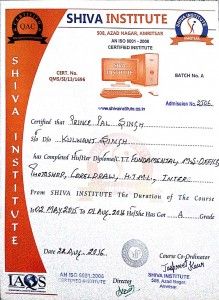 SHIVA INSTITUTE
508, AZAD NAGAR, AMRITSAR
AN ISO 9001 : 2008
CERTIFIED INSTITUTE
QAC
CERT. No.
QMS/SI/13/1696
BATCH No. A
www.shivainstitute.co.in
Admission No. 2506
SHIVA INSTITUTE
Certified that PRINCE PAL SINGH
S/o D/o KULWANT SINGH
has Completed He/Her Diploma I.T. FUNDAMENTAL, MS-OFFICE
PHOTOSHOP, CORELDRAW, H.T.M.L, INTER.
From SHIVA INSTITUTE The Duration of the Course
is 02 MAY 2015 to 01 AUG. 2016 He/She Has Got A Grade
Date 22 AUG. 2016.
Course Co-ordinator
AN ISO 9001:2008
CERTIFIED INSTITUTE
Director
SHIVA INSTITUTE
508, AZAD Nagar,
Amritsar.
IAQS